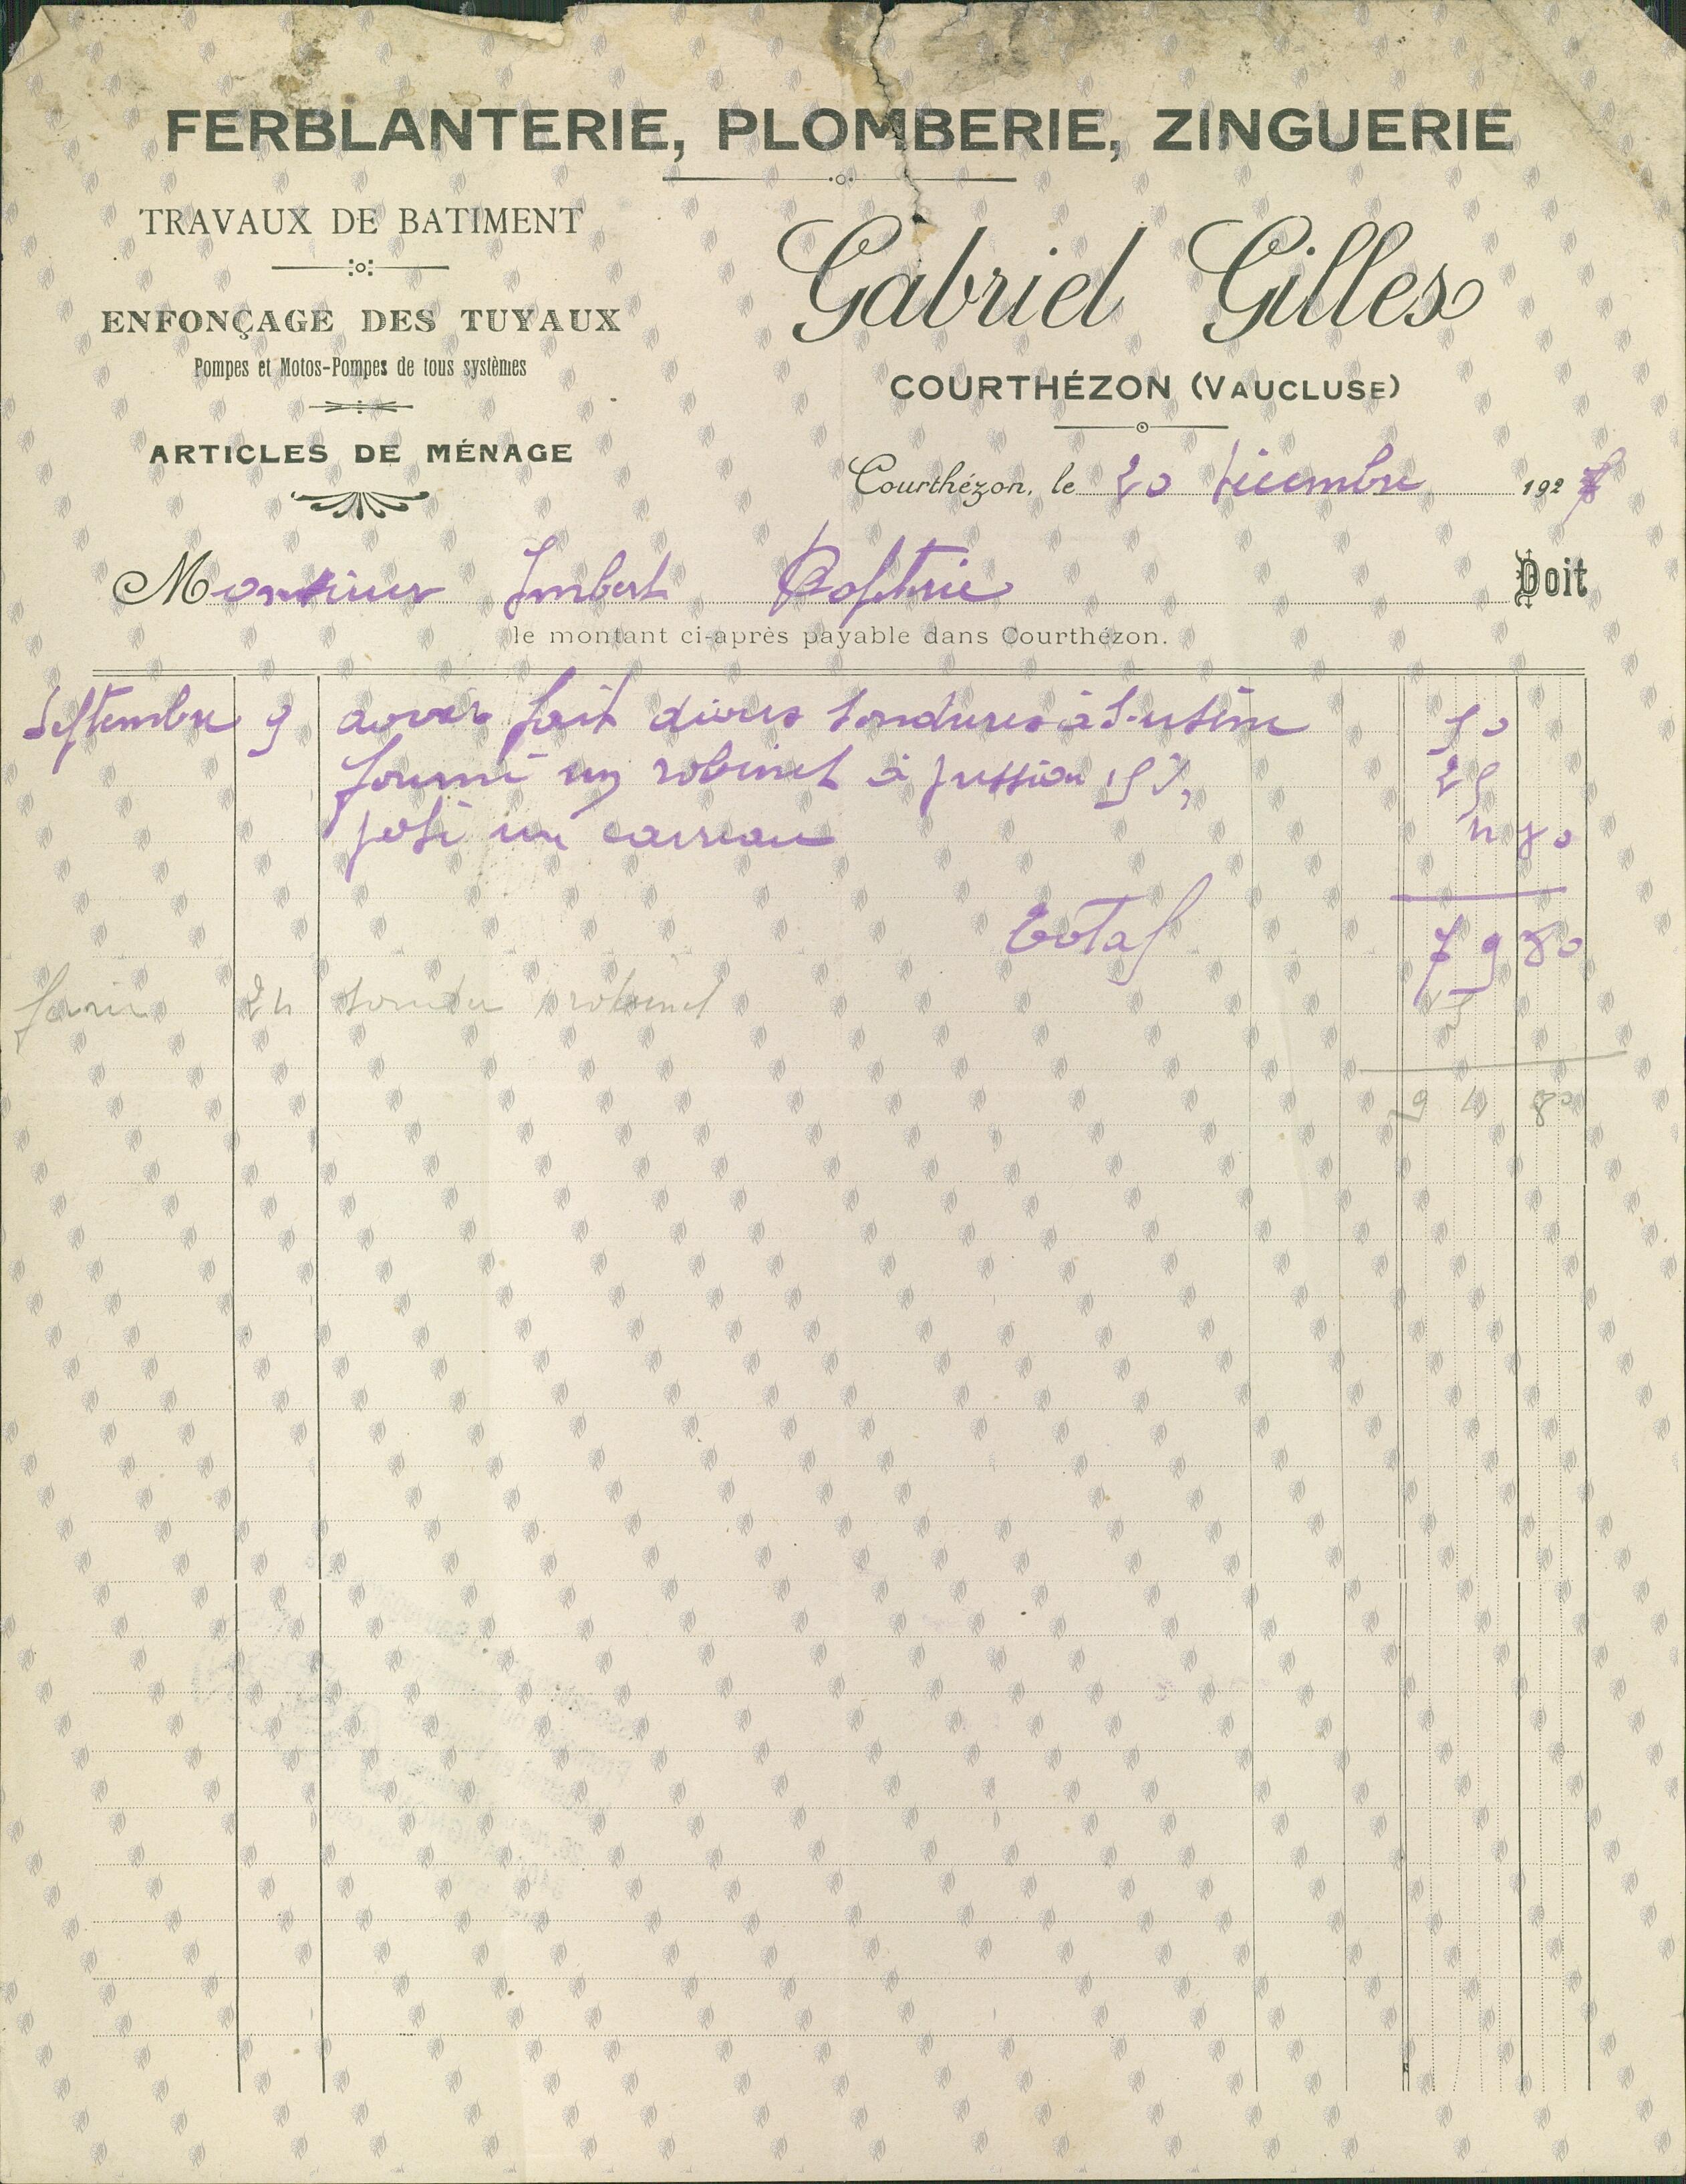 FERBLANTERIE, PLOMBERIE, ZINGUERIE
TRAVAUX DE BATIMENT
ENFONÇAGE DES TUYAUX
Pompes et Motos-Pompes de tous systèmes
ARTICLES DE MÉNAGE
Gabriel Gilles
COURTHÉZON (VAUCLUSE)
Courthézon, le 20 décembre 1927
Monsieur Imbert Doit
le montant ci-après payable dans Courthézon.
Septembre 9 avoir fait divers soudures à 50
fourni un robinet à pression 15 25
posé un carreau 4 80
Total 79 80
24 souder robinet 15
94 80